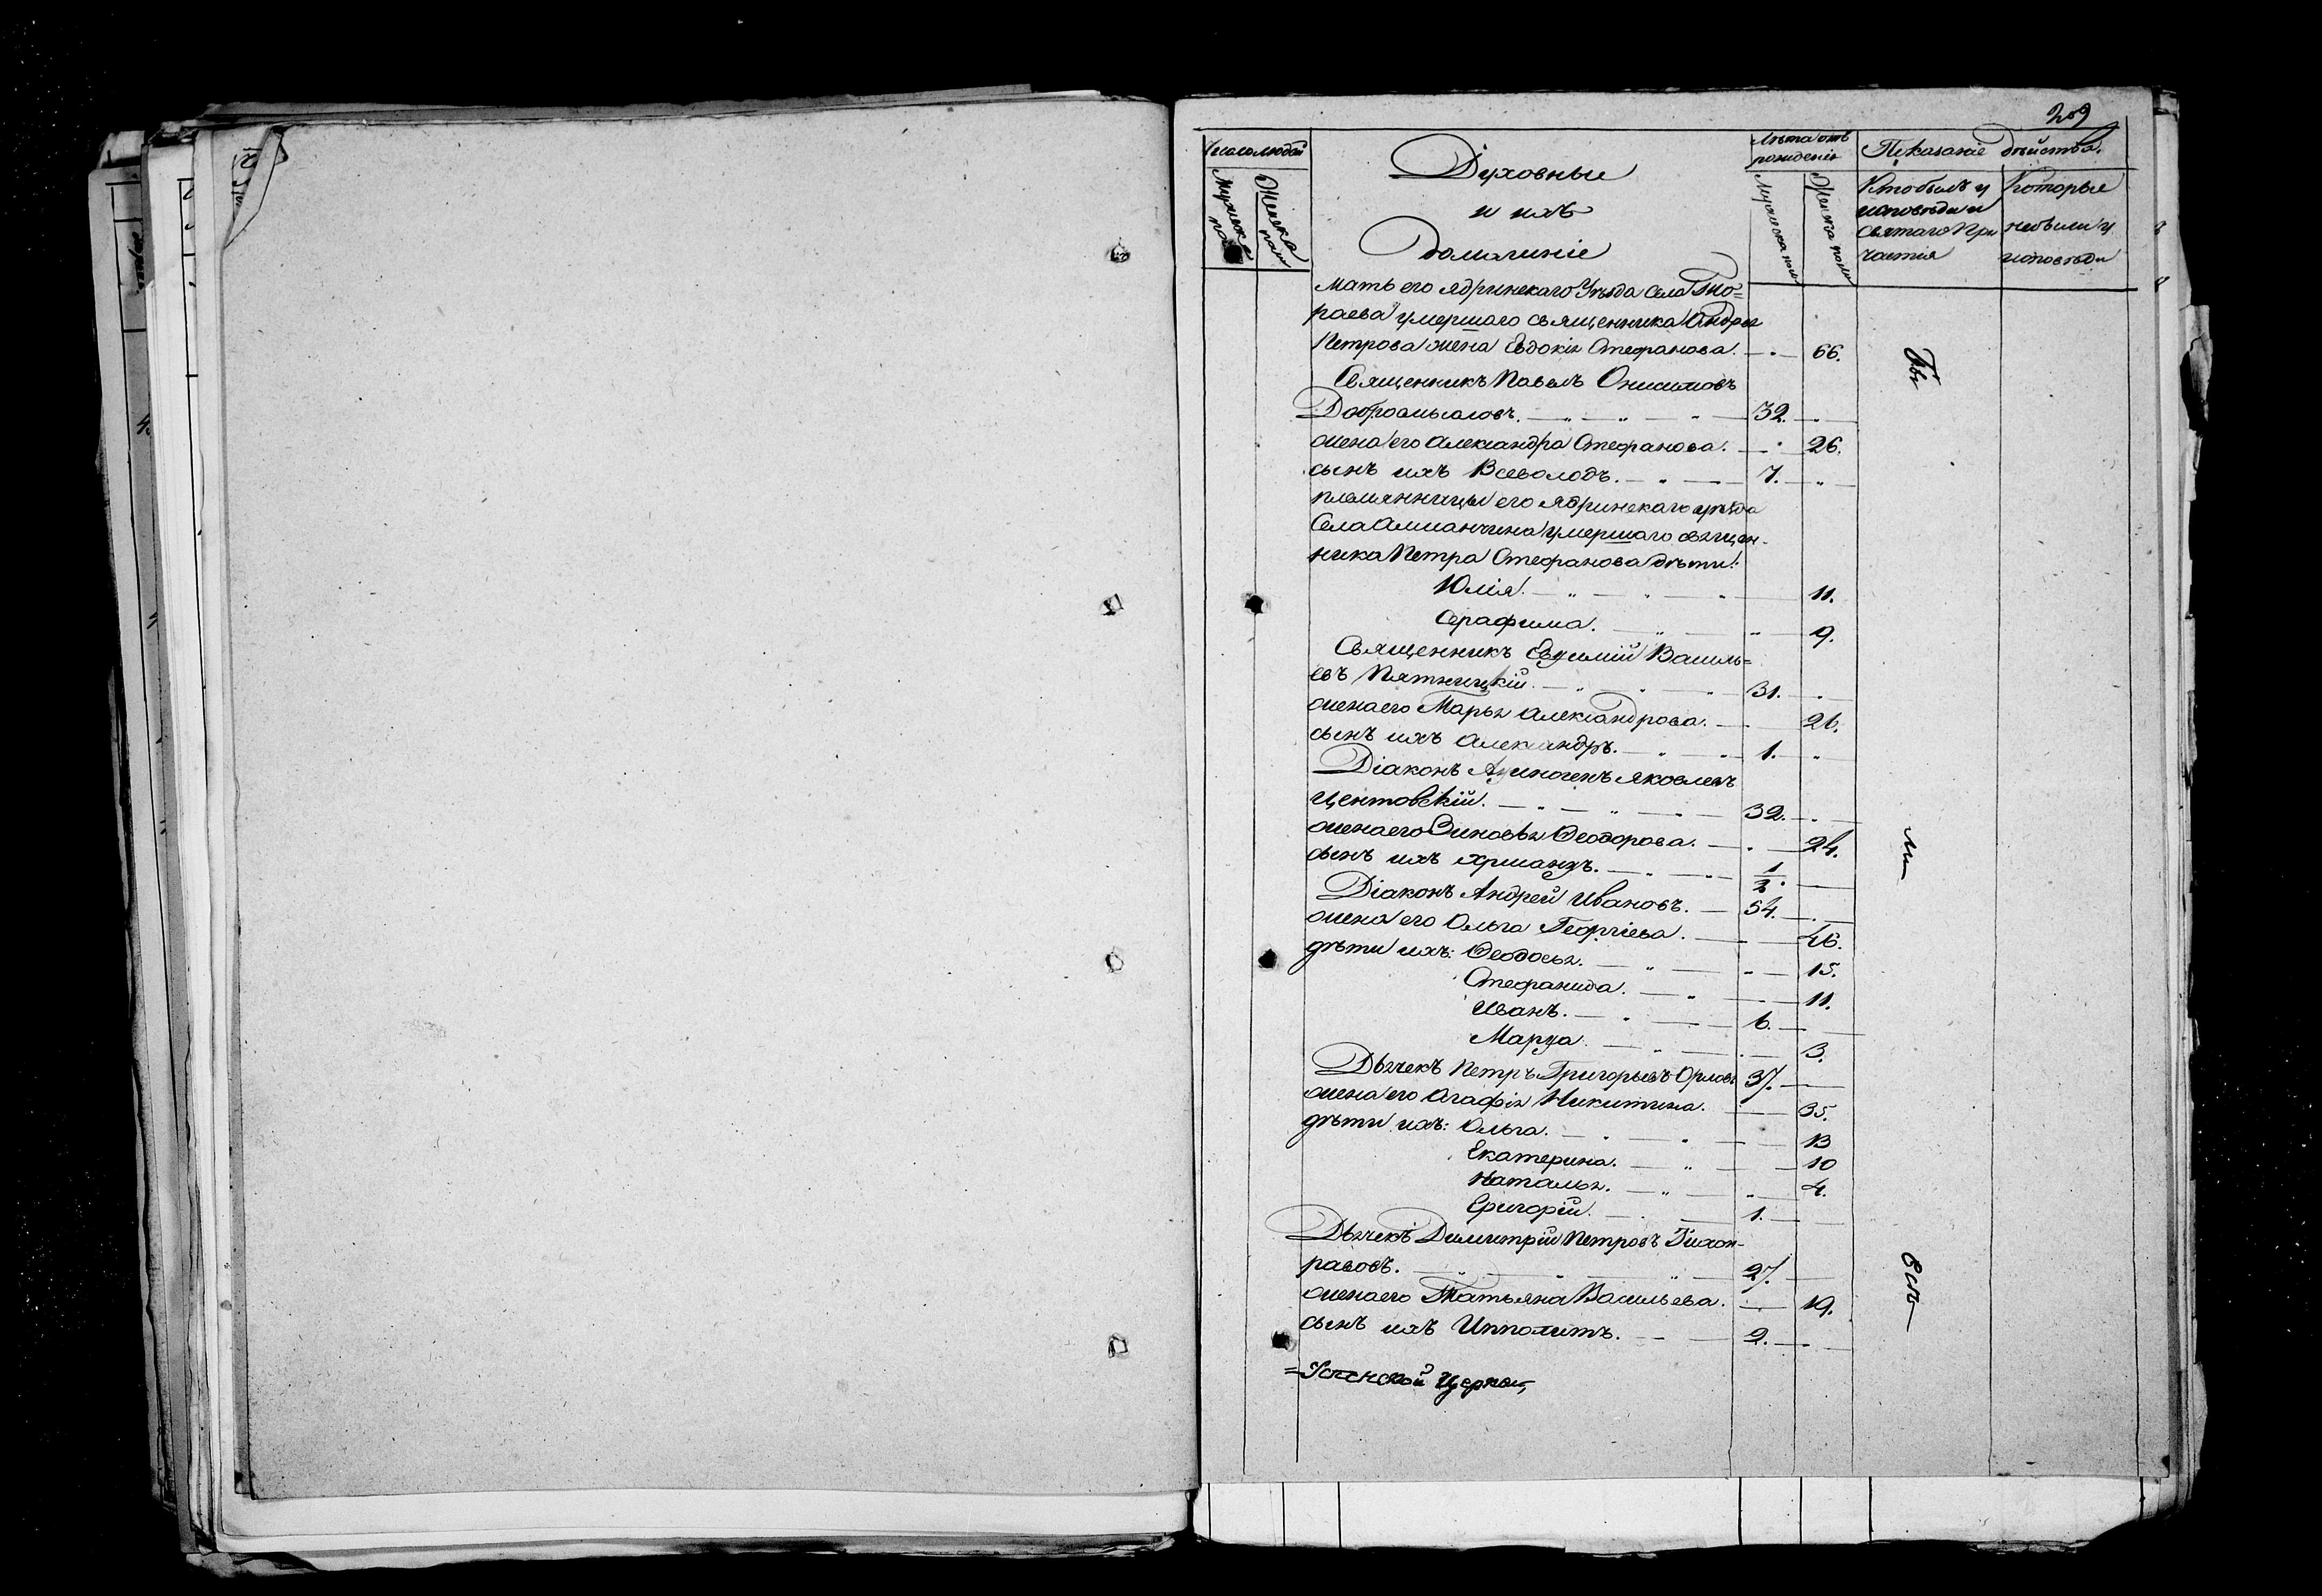 209
Число людей
Мужеска
Женска
Духовные
и ихъ
Домашніе
Лѣта отъ
рожденія
Мужеска полъ
Женска полъ
Показаніе дѣйства.
Кто былъ у
исповѣди и
Святаго При
частія
Которые
небыли у
исповѣди
Мать его Ядринскаго Уѣзда Села Тю=
раева умершаго священника Андрея
Петрова жена Евдокія Стефанова. 66.
Священникъ Павелъ Онисимовъ
Добросмысловъ. 32.
жена его Александра Стефанова. 26.
сынъ ихъ Всеволодъ. 7.
племянницы его Ядринскаго уѣзда
Села Алманчина умершаго священ-
ника Петра Стефанова дѣти:
Юлія. 11.
Серафима. 9.
Священникъ Евѳимій Василь=
евъ Пятницкій. 31.
жена его Марья Александрова. 26.
сынъ ихъ Александръ. 1.
Діаконъ Аѳиногенъ Яковлевъ
Центовскій. 32.
жена его Зиновья Ѳеодорова. 24.
сынъ ихъ Хрисанѳъ. 1/2.
Діаконъ Андрей Ивановъ. 54.
жена его Ольга Георгіева. 46.
дѣти ихъ: Ѳеодосья. 15.
Стефанида. 11.
Иванъ. 6.
Марѳа. 3.
Дьячекъ Петръ Григорьевъ Орловъ 37.
жена его Агафія Никитина. 35.
дѣти ихъ: Ольга. 13
Екатерина. 10
Наталья. 4.
Григорій. 1.
Дьячекъ Димитрій Петровъ Тихон-
равовъ. 27.
жена его Татьяна Васильева. 19.
сынъ ихъ Ипполитъ. 2.
=Успенской Церкви,
Бы
ли
Всѣ